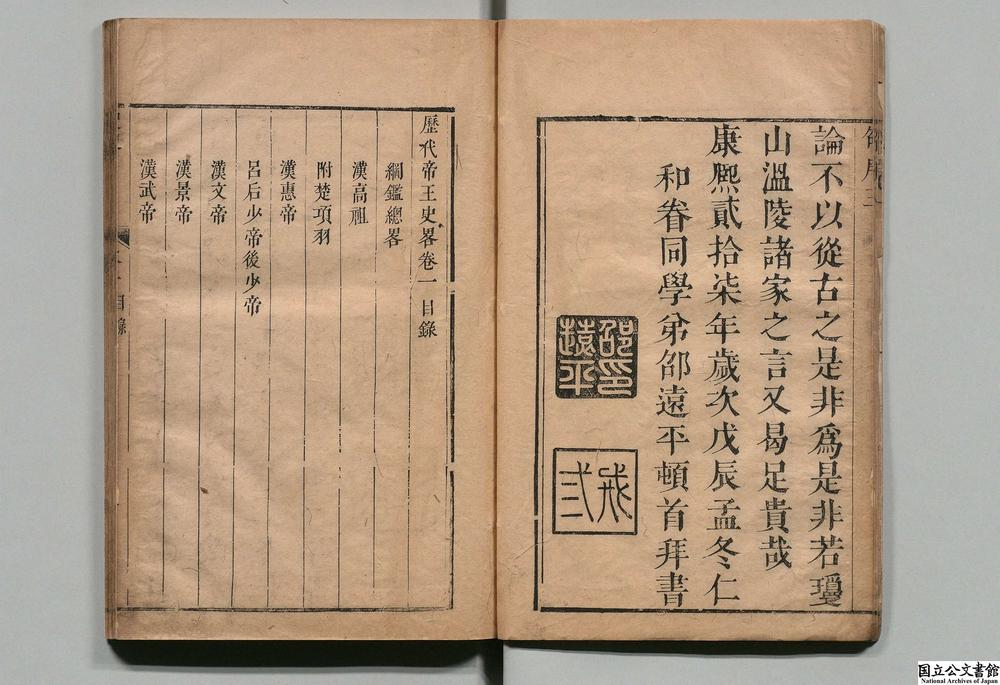 論不以從古之是非爲是非若瓊
山溫陵諸家之言又曷足貴哉
康熙貳拾柒年歲次戊辰孟冬仁
和眷同學弟邵遠平頓首拜書
邵印遠平
戒弍
歷代帝王史畧卷一 目錄
綱鑑總畧
漢高祖
附楚項羽
漢惠帝
呂后少帝後少帝
漢文帝
漢景帝
漢武帝
目錄
国立公文書館
National Archives of Japan